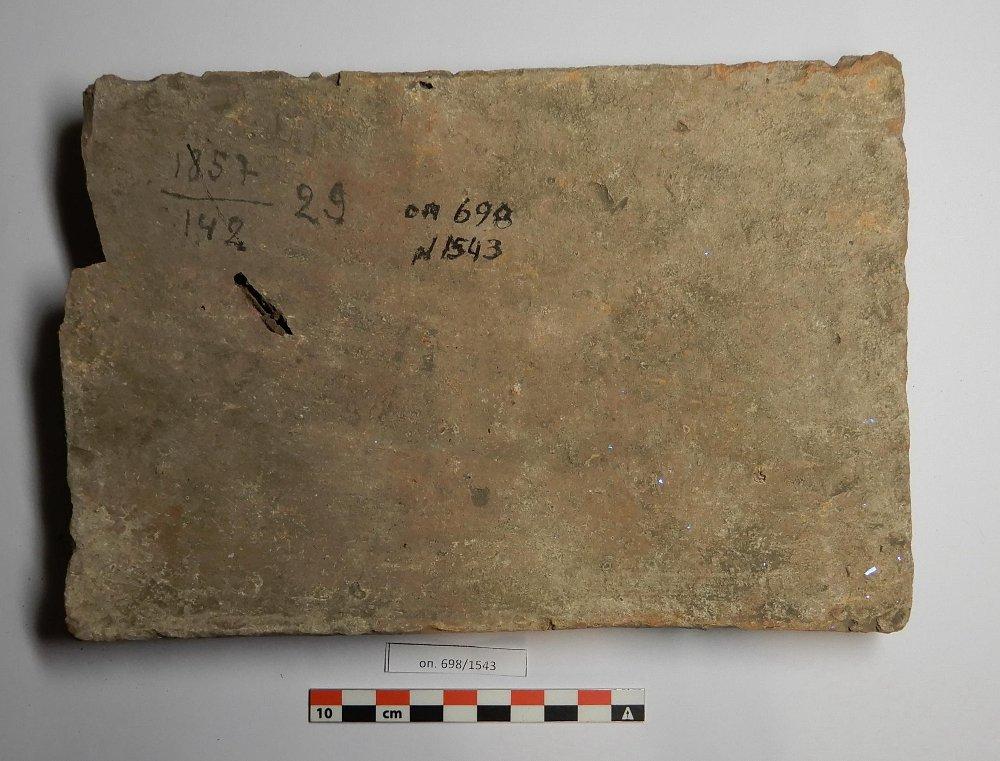 1857
142
29
оп 698
N 1543
оп. 698/1543
10 cm A